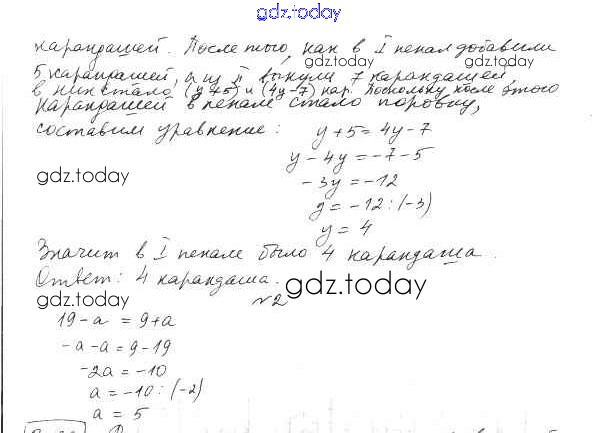 gdz.today
карандашей. После того, как в I пенал добавили
gdz.today gdz.today
5 карандашей, а из II вынули 7 карандашей,
в них стало (y+5) и (4y-7) кар. Поскольку после этого
карандашей в пенале стало поровну,
составим уравнение: y+5=4y-7
y-4y=-7-5
gdz.today -3y=-12
y=-12:(-3)
y=4
Значит в I пенале было 4 карандаша.
Ответ: 4 карандаша.
№2 gdz.today
gdz.today
19-a=9+a
-a-a=9-19
-2a=-10
a=-10:(-2)
a=5